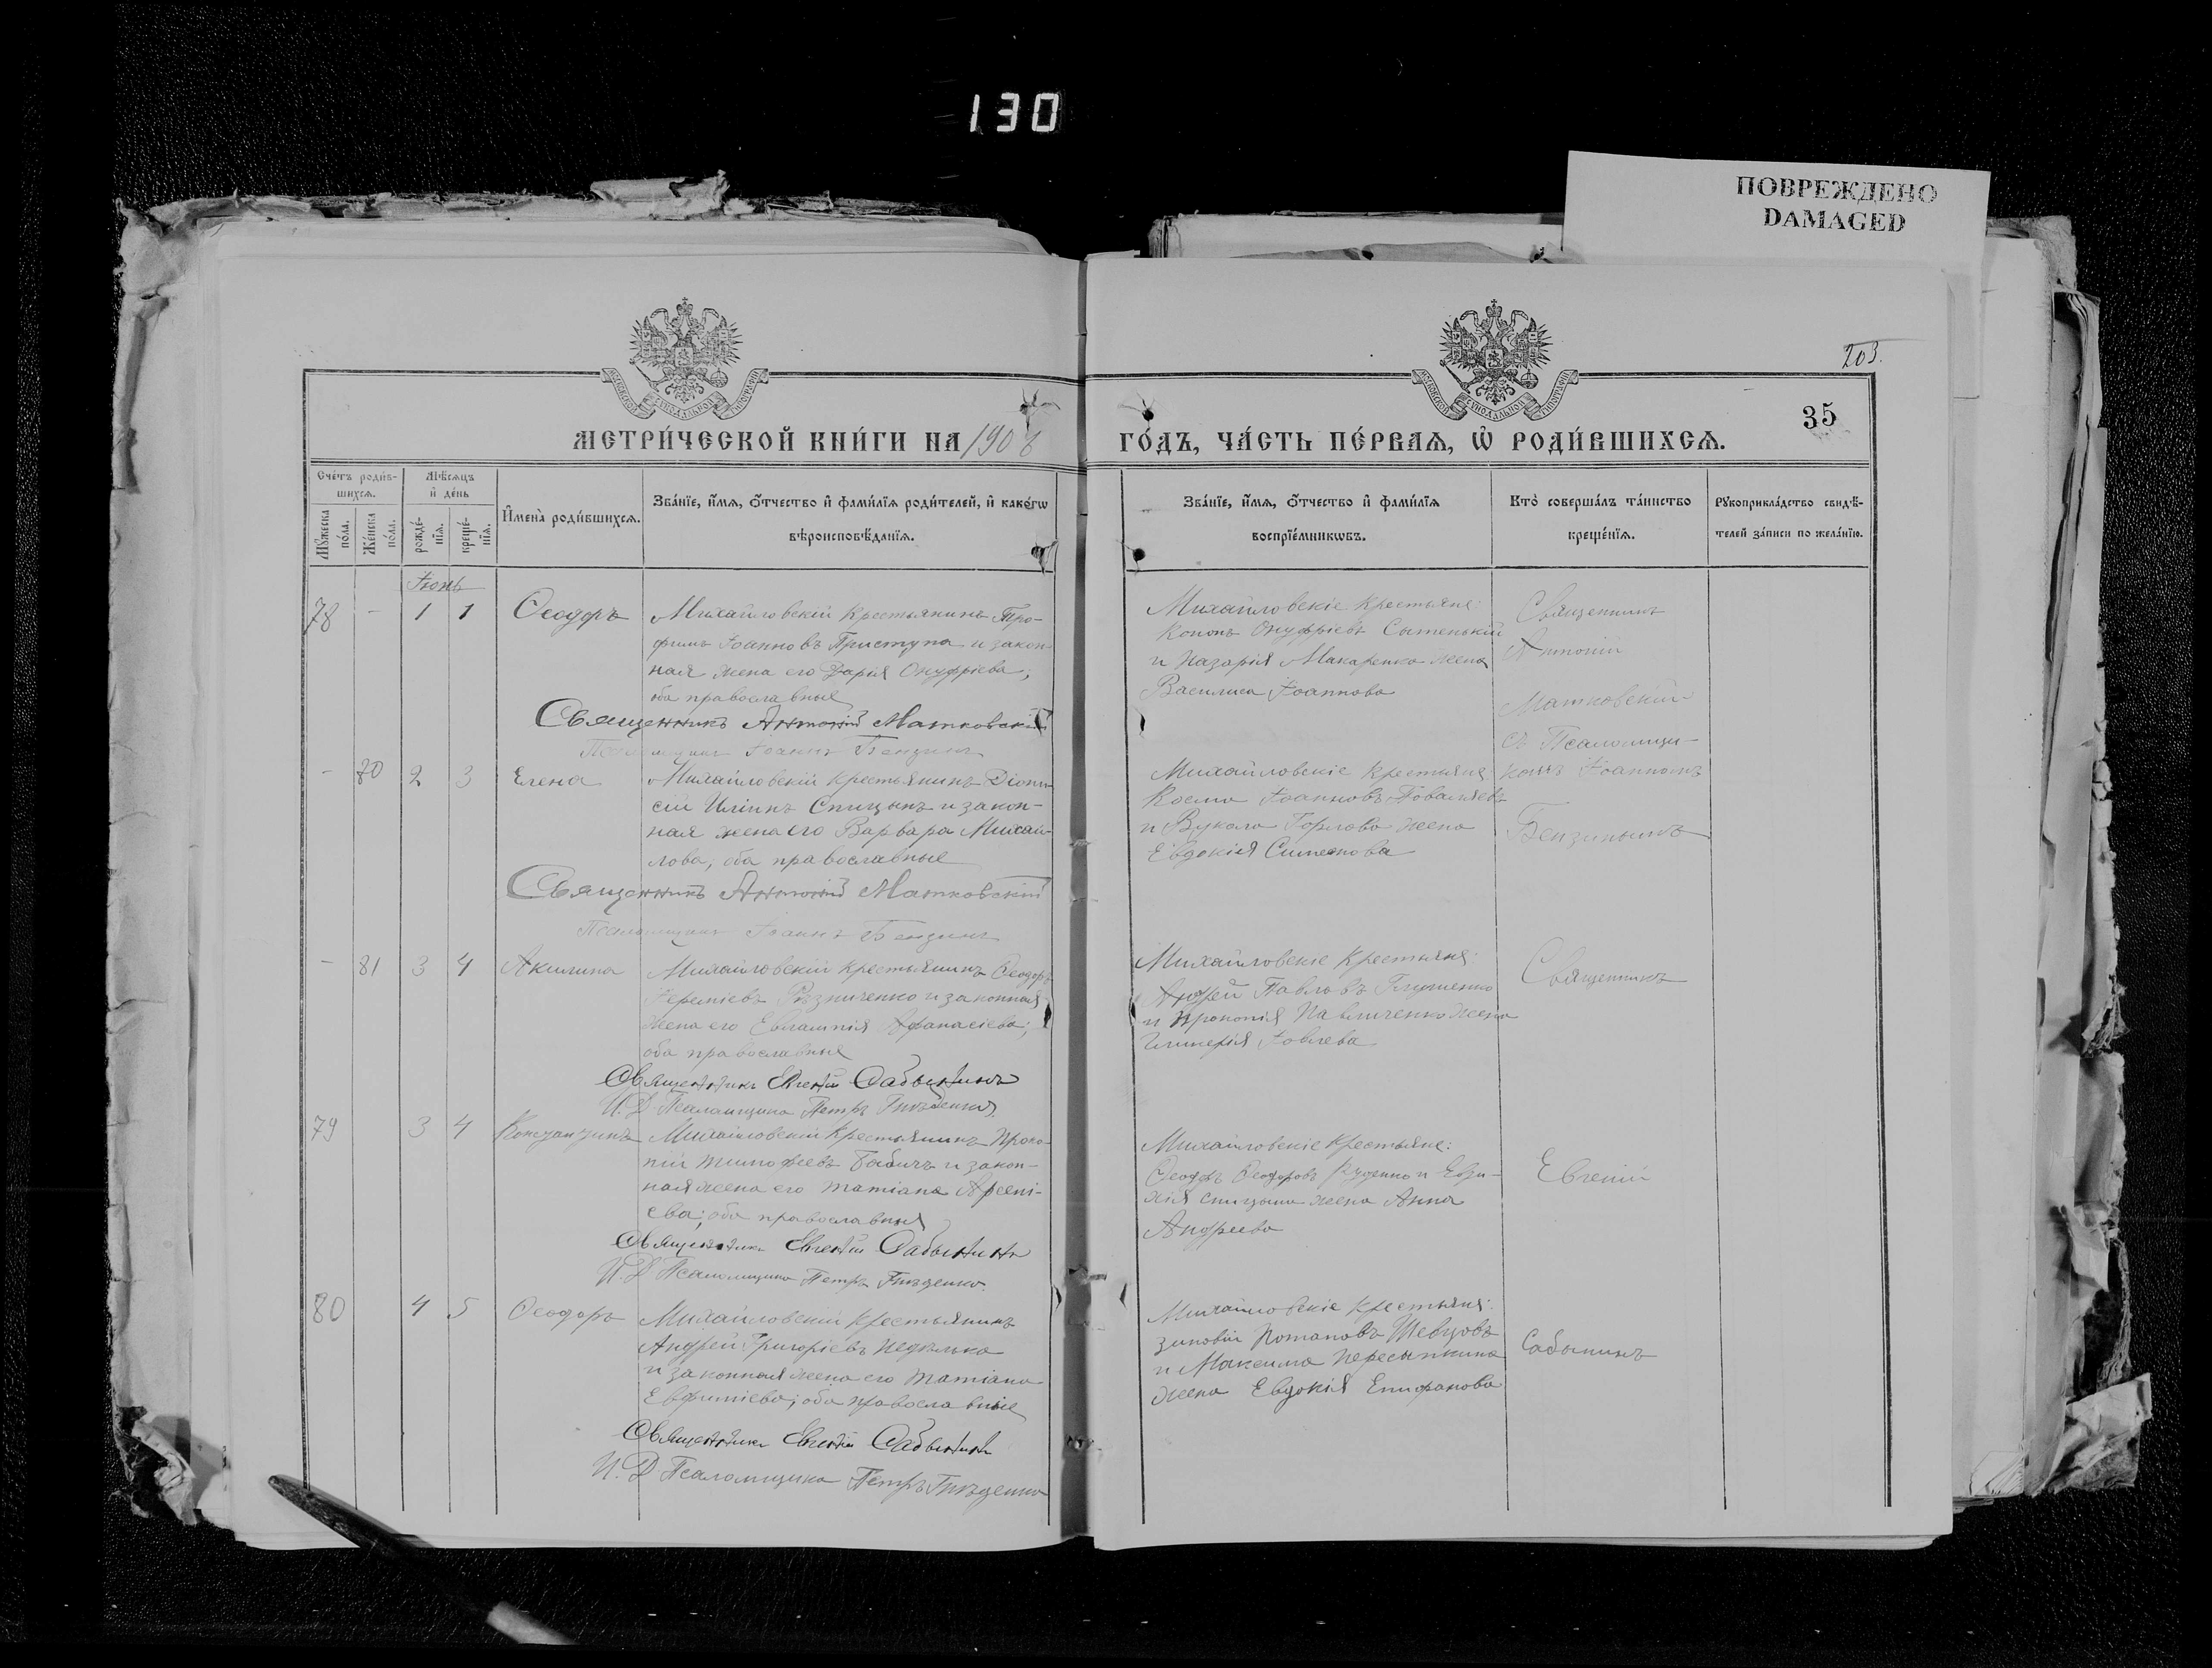 130
ПОВРЕЖДЕНО
DAMAGED
203.
35
МЕТРИ́ЧЕСКОЙ КНИ́ГИ НА 1908
ГО́ДЪ, ЧА́СТЬ ПЕ́РВАЯ, Ѡ҆ РОДИ́ВШИХСЯ.
Сче́тъ роди́в-
шихся.
Мѣ́сяцъ
и҆ де́нь
Мꙋ́жеска
по́ла.
Же́нска
по́ла.
рожде́-
нїя.
креще́-
нїя.
И҆мена̀ роди́вшихся.
Зва́нїе, и҆́мя, ѻ҆́тчество и҆ фами́лїя роди́телей, и҆ како́гѡ
вѣроисповѣ́данїя.
Зва́нїе, и҆́мя, ѻ҆́тчество и҆ фами́лїя
воспрїе́мникѡвъ.
Кто̀ соверша́лъ та́инство
креще́нїя.
Рꙋкоприкла́дство свидѣ́-
телей за́писи по жела́нїю.
Іюнь
78 - 1 1 Ѳеодоръ Михайловскій крестьянинъ Тро-
фимъ Іоанновъ Приступа и закон-
ная жена его Дарія Онуфріева,
оба православные
Священникъ Антоній Матковскій
Псаломщикъ Іоаннъ Бензинъ
Михайловскіе крестьяне:
Кононъ Онуфріевъ Сытенькій
и Назарія Макаренко жена
Василиса Іоаннова
Священникъ
Антоній
Матковскій
съ Псаломщи-
комъ Іоанномъ
Бензинымъ
- 80 2 3 Елена Михайловскій крестьянинъ Діони-
сій Иліинъ Спицынъ и закон-
ная жена его Варвара Михай-
лова, оба православные
Священникъ Антоній Матковскій
Псаломщикъ Іоаннъ Бензинъ
Михайловскіе крестьяне:
Косма Іоанновъ
и Вукола Горлова жена
Евдокія Симеонова
- 81 3 4 Акилина Михайловскій крестьянинъ Ѳеодоръ
Іереміевъ Рѣзниченко и законная
жена его Евлампія Афанасіева;
оба православные
Священникъ Евгеній Сабынинъ
И. Д. Псаломщика Петръ Гнѣденко
Михайловскіе крестьяне:
Андрей Павловъ Глущенко
и Прокопія Павличенко жена
Гликерія Іовлева
Священникъ
79 3 4 Константинъ Михайловскій крестьянинъ Проко-
пій Тимофеевъ Бабичъ и закон-
ная жена его Татіана Арсені-
ева; оба православные
Священникъ Евгеній Сабынинъ
И. Д. Псаломщика Петръ Гнѣденко
Михайловскіе крестьяне:
Ѳеодоръ Ѳеодоровъ Руденко и
Спицына жена Анна
Андреева
Евгеній
80 4 5 Ѳеодоръ Михайловскій крестьянинъ
Андрей Григоріевъ Недѣлько
и законная жена его Татіана
Евфиміева; оба православные
Священникъ Евгеній Сабынинъ
И. Д. Псаломщика Петръ Гнѣденко
Михайловскіе крестьяне:
Зиновій Потаповъ Шевцовъ
и Максима Пересыпкина
жена Евдокія Епифанова
Сабынинъ